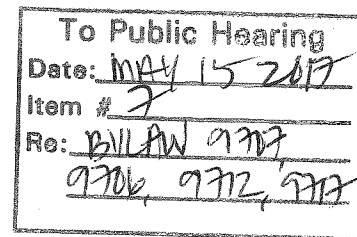 To Public Hearing
Date: MAY 15 2017
Item # 7
Re: BYLAW 9707,
9706, 9712, 9717